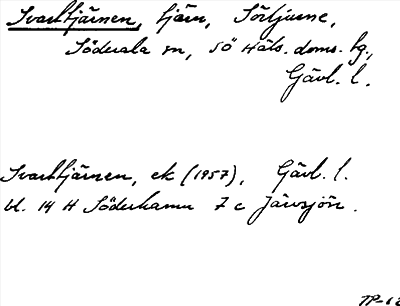 Svarttjärnen, tjärn, Sörljusne,
Söderala sn, SÖ Häls. doms. tg.,
Gävl. l.
Svarttjärnen, ek (1957), Gävl. l.
bl. 14 H Söderhamn 7 c Järvsjön.
TP-62